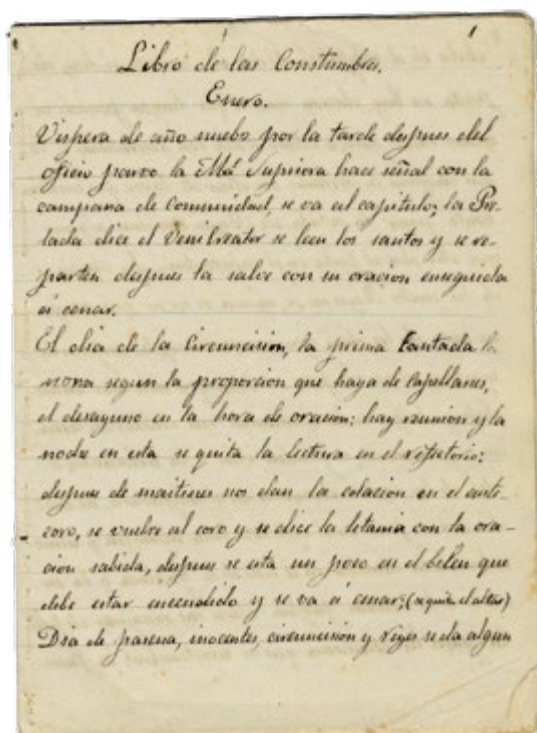 1
Libro de las Constumbres.
Enero.
Vispera de año nuebo por la tarde despues del
oficio parvo la Me Supriora hace señal con la
campana de Comunidad, se va al capitulo; la Pre-
lada dice el Veni Creator se leen los santos y se re-
parten despues la salve con su oracion enseguida
á cenar.
El dia de la Circuncision, la prima Cantada la
nona segun la proporcion que haya de Capellanes,
el desayuno en la hora de oracion: hay reunion y la
noche en esta se quita la lectura en el refectorio:
despues de maitines nos dan la colacion en el ante
coro, se vuelve al coro y se dice la letania con la ora-
cion sabida, despues se esta un poco en el belen que
debe estar encendido y se va á cenar; (se quita el altar)
Dia de pascua, inocentes, circuncision y Reyes se da algun